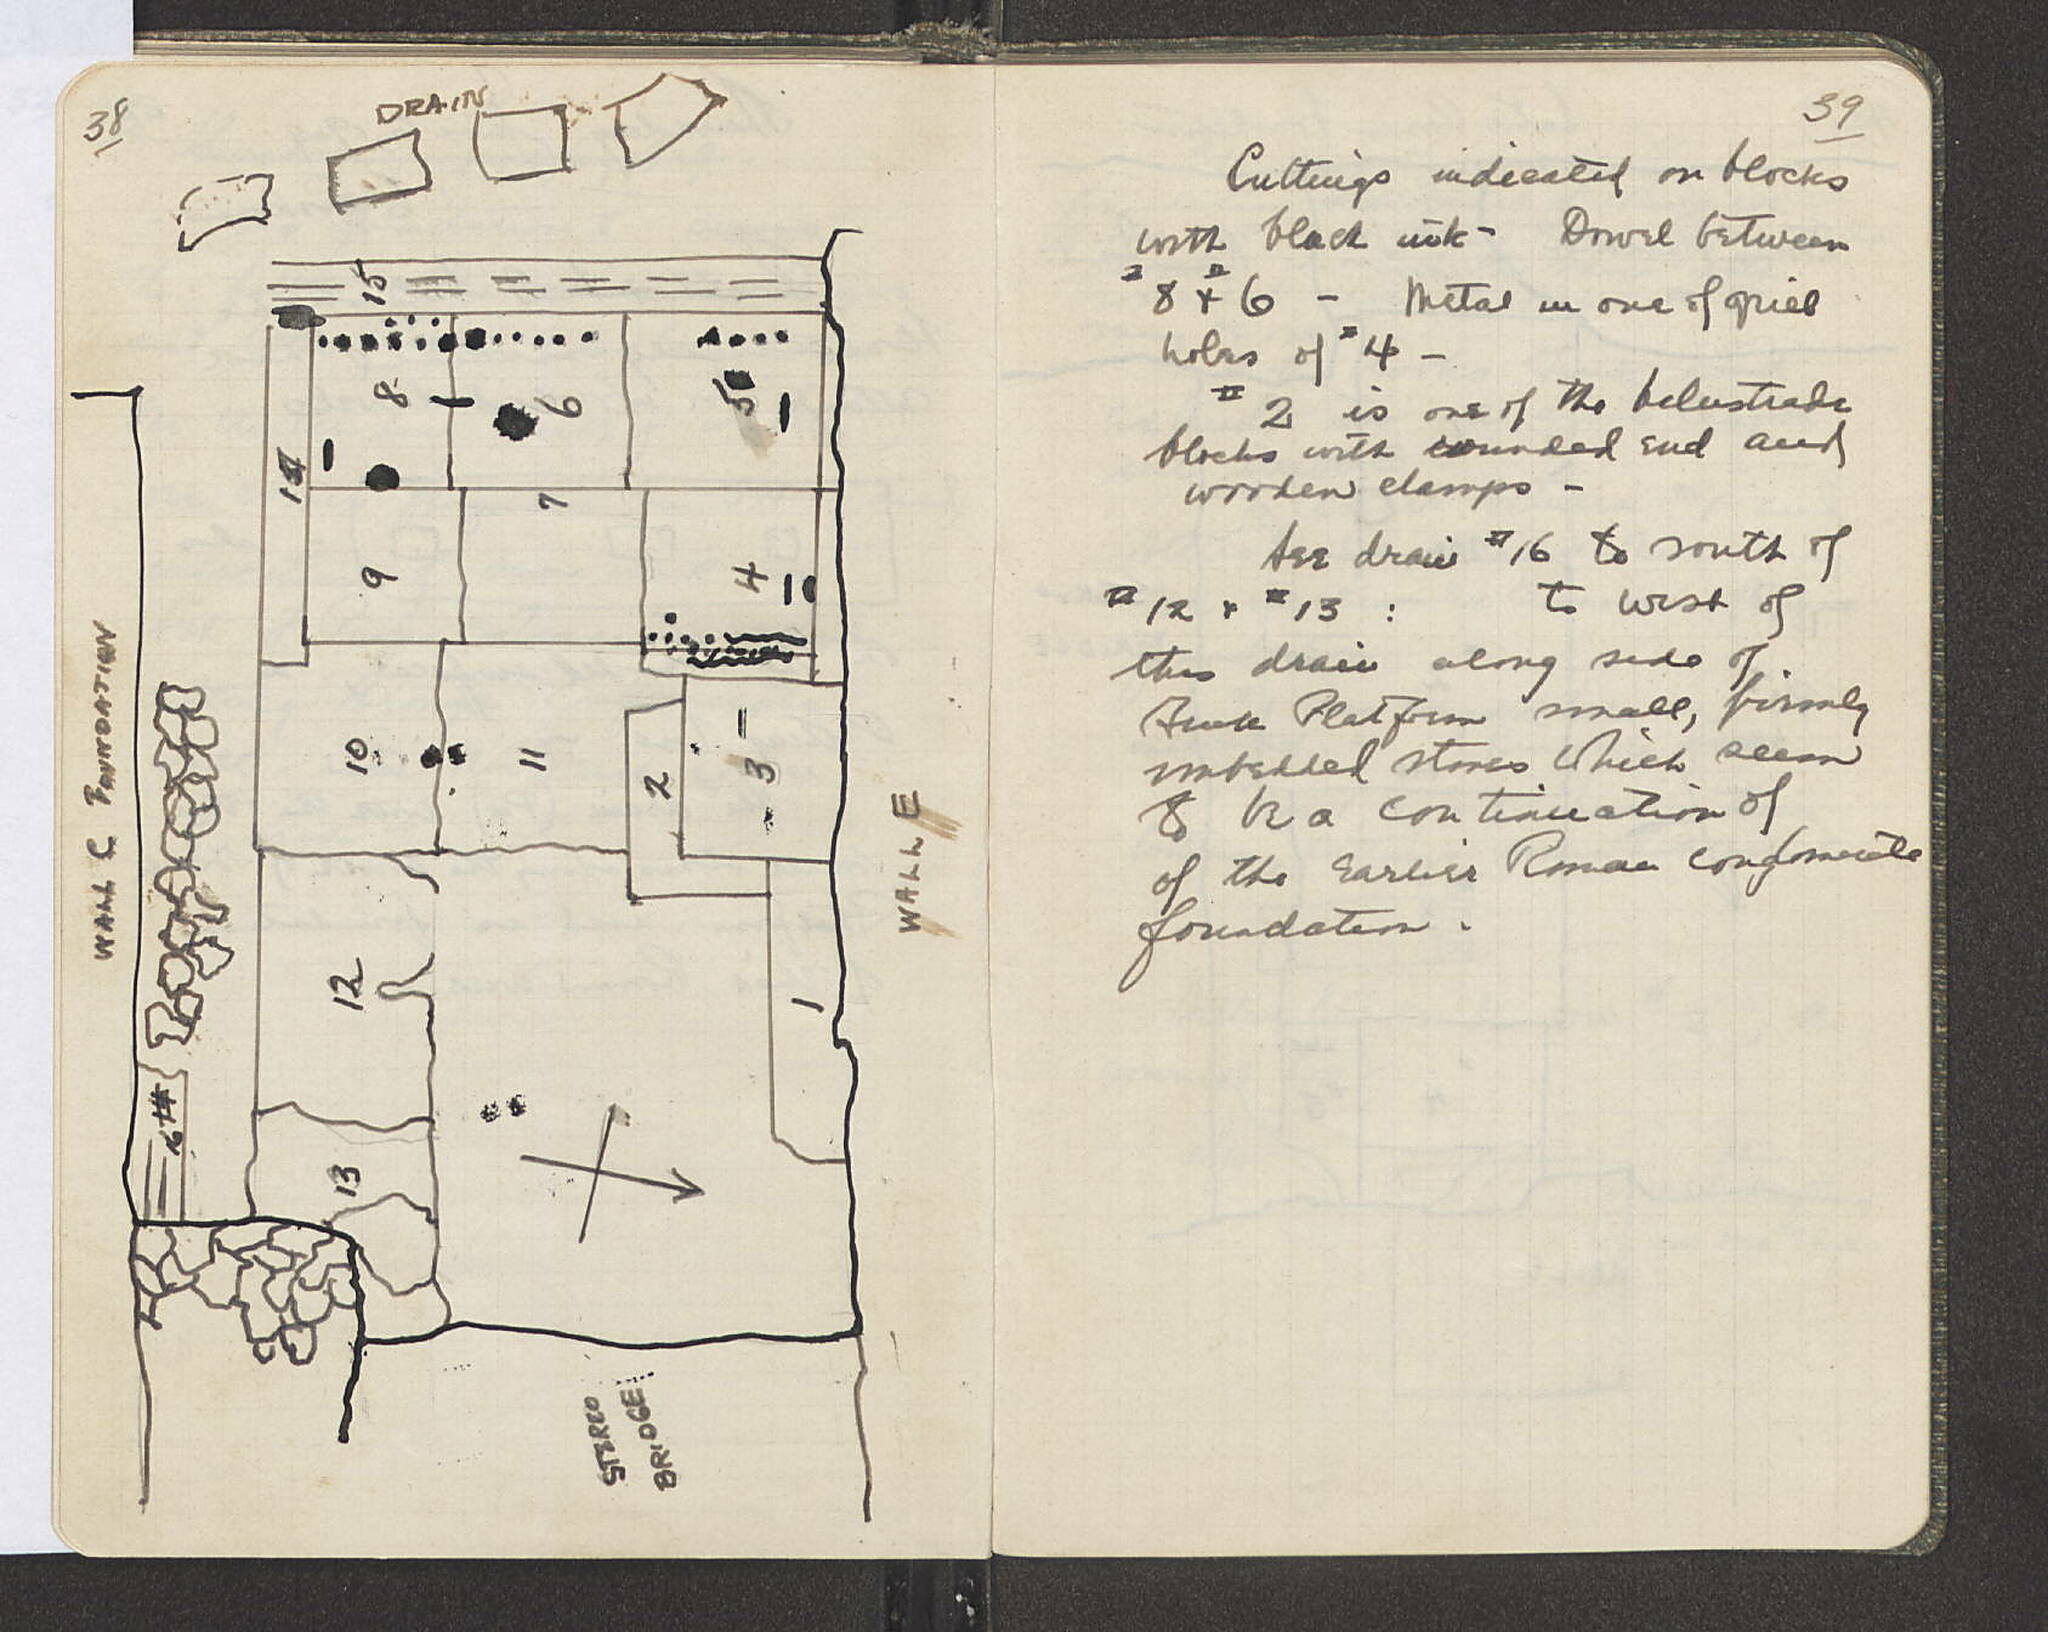 38
DRAIN
15
8
6
5
14
9
7
4
WALL C FOUNDATION
10
11
2
3
WALL E
12
1
16 #
13
STEREO
BRIDGE
39
Cuttings indicated on blocks
with black ink - Dowel between
#8 + #6 - Metal in one of grill
holes of #4 -
#2 is one of the balustrade
blocks with rounded end and
wooden clamps -
See drain #16 to south of
#12 + #13 : to west of
this drain along side of
Platform small, firmly
imbedded stones which seem
to be a continuation of
of the earlier Roman conglomerate
foundation.